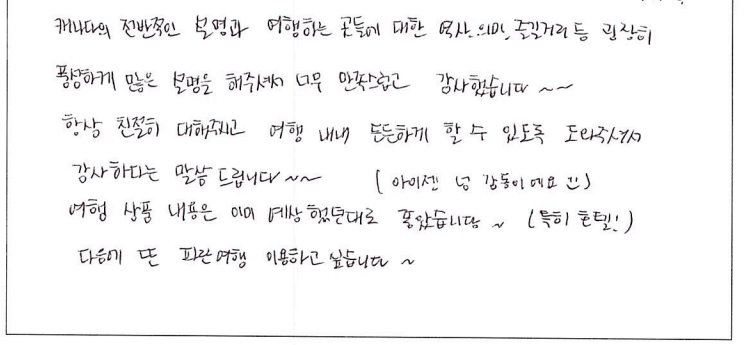 캐나다의 전반적인 설명과 여행하는 곳들에 대한 역사, 의미, 즐길거리 등 굉장히
풍성하게 많은 설명을 해주셔서 너무 만족스럽고 감사했습니다 ~~
항상 친절히 대해주시고 여행 내내 든든하게 할 수 있도록 도와주셔서
감사하다는 말씀 드립니다 ~~ ( 아이젠 넘 감동이에요 :) )
여행 상품 내용은 이미 예상했던대로 좋았습니다 ~ (특히 호텔!)
다음에 또 파란여행 이용하고 싶습니다 ~